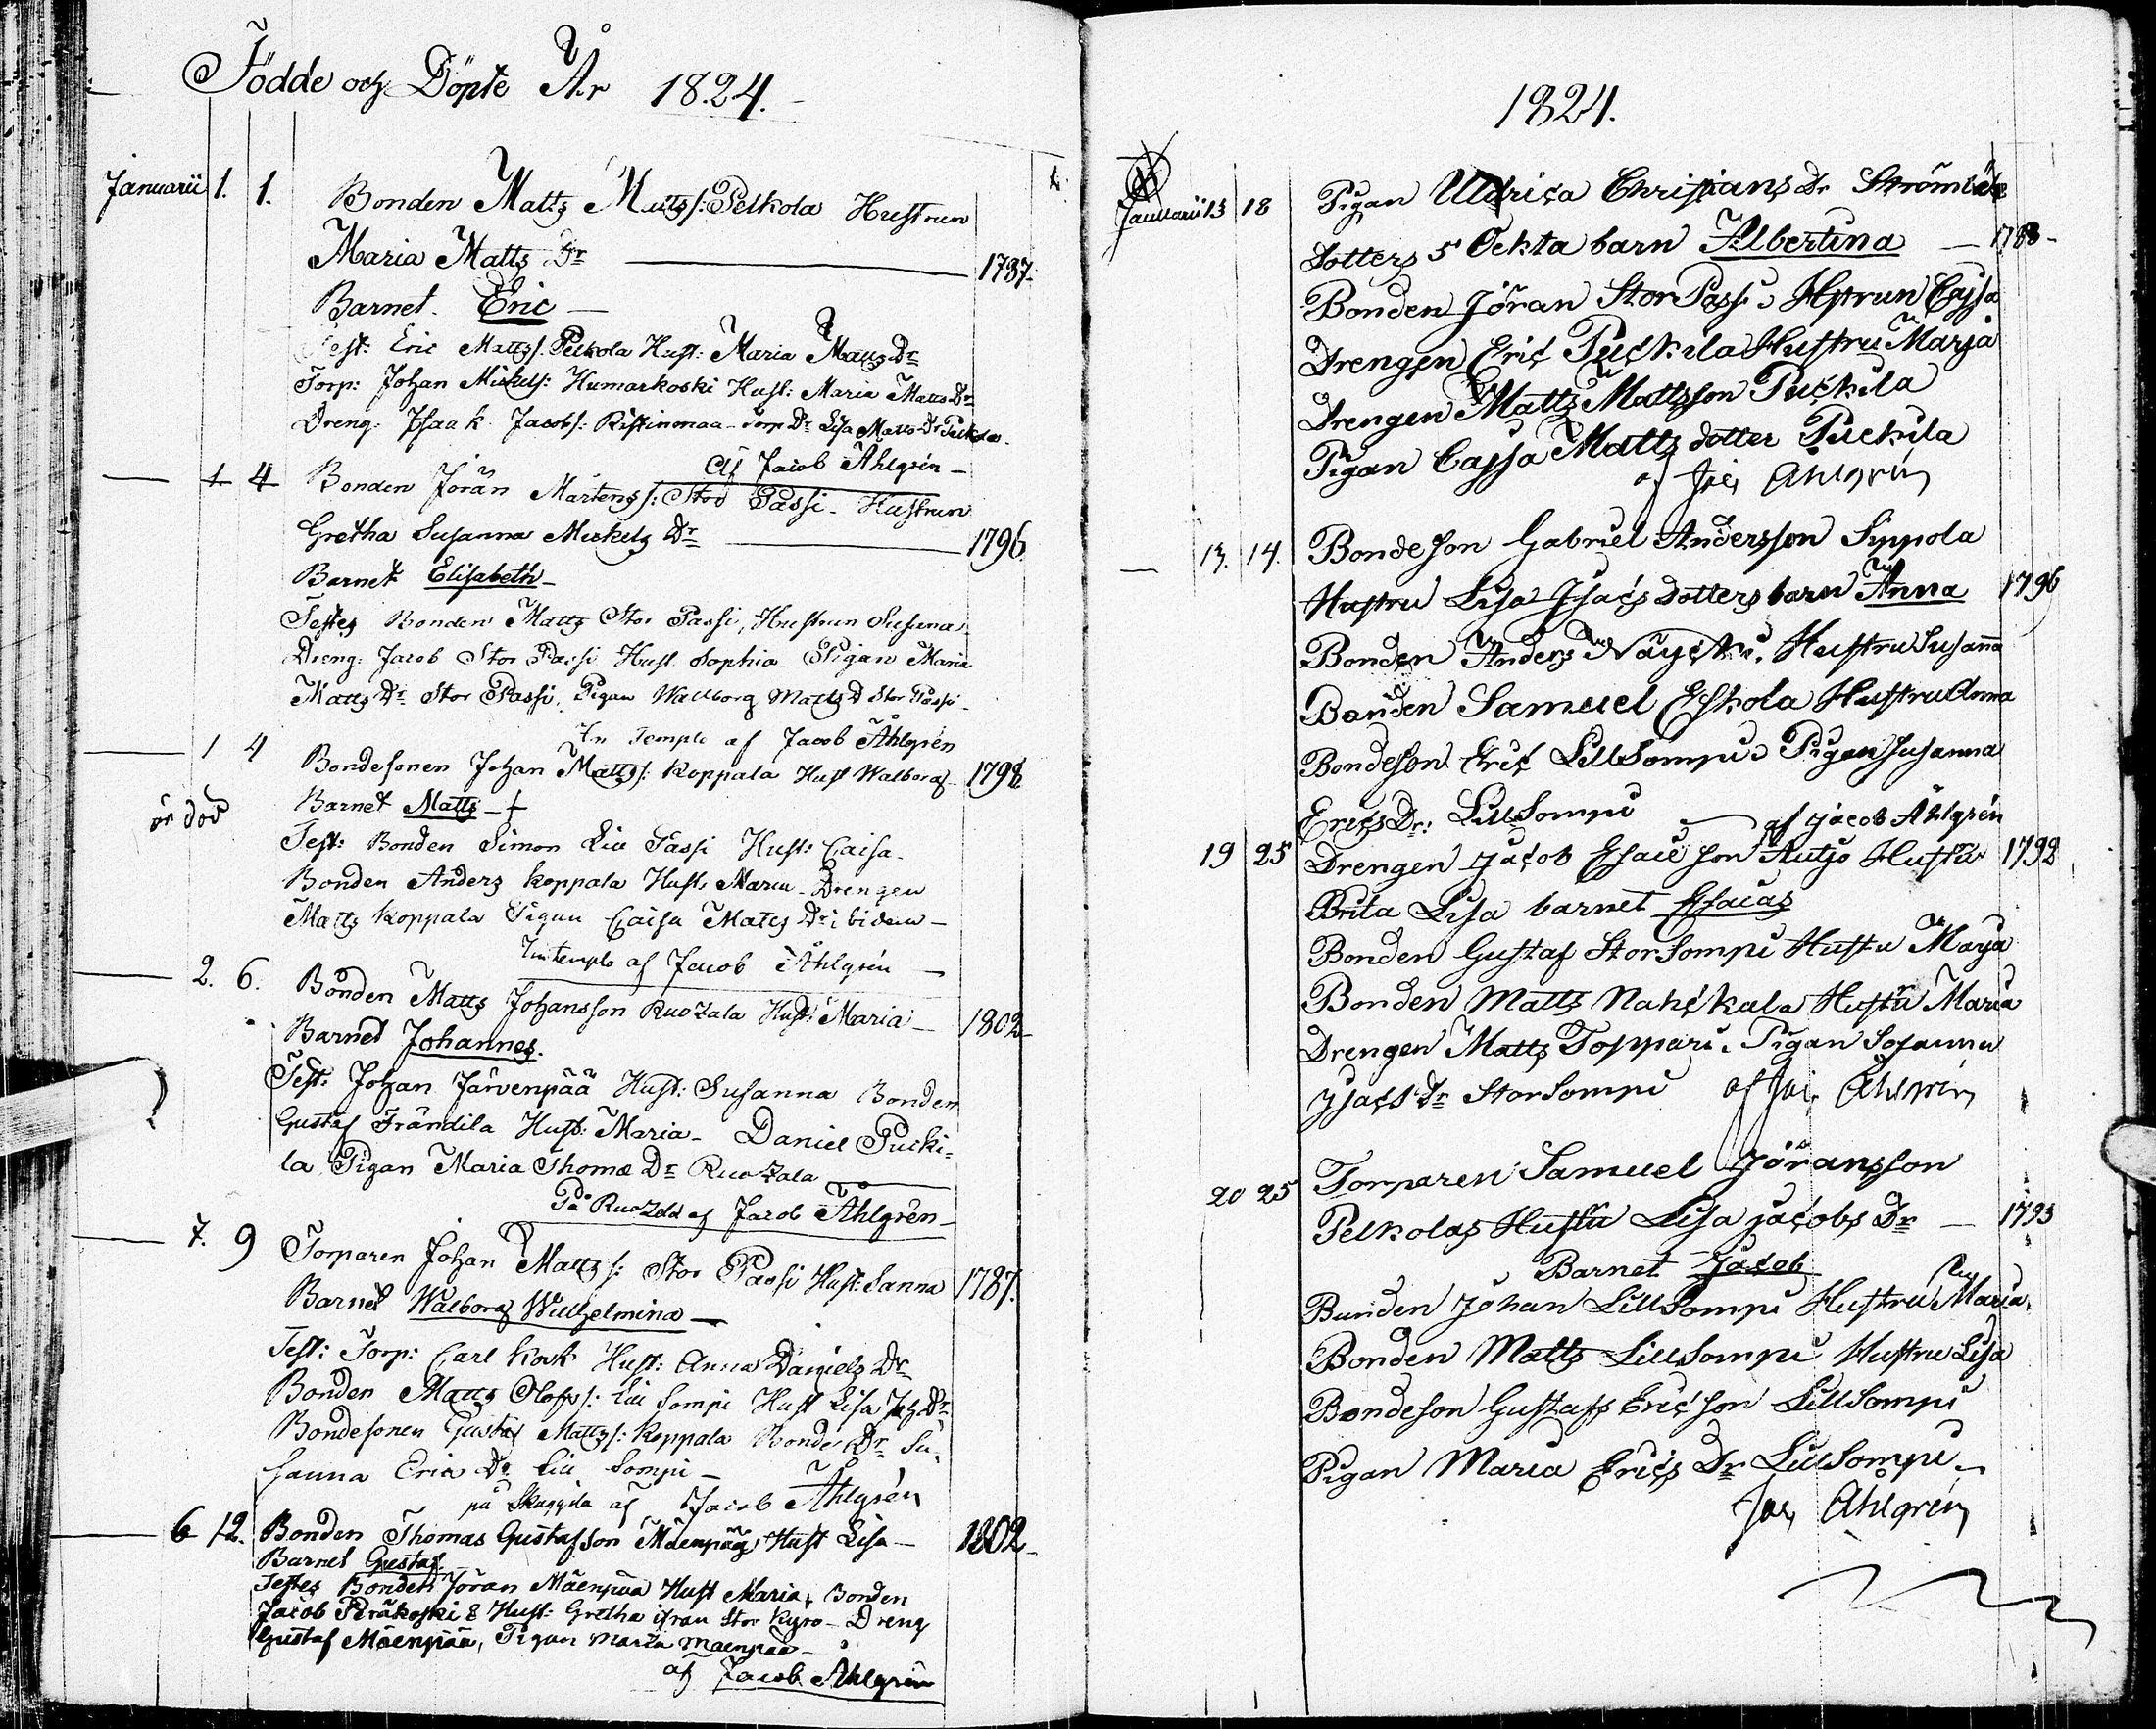 Födde och Döpte År 1824.
Januarii 1. 1. Bonden Matts Matts/: Pelkola Hustrun
Maria Matts Dr 1787
Barnet Eric
Test: Eric Matts/: Pelkola Hust: Maria Matts Dr
Torp: Johan Mickels/: Humarkoski Hust: Maria Matts Dr
Dreng: Isaak Jacobs/: Ristinomaa Torp Dr Lisa Matts Dr Pelkola
af Jacob Åhlgrén
1 4 Bonden Jöran Mårtens/: Stor Passi Hustrun
Gretha Susanna Mickels Dr 1796
Barnet Elisabeth
Testes Bonden Matts Stor Passi, Hustrun Susanna
Dreng: Jacob Stor Passi Hust Sophia Pigan Maria
Matts Dr Stor Passi, Pigan Wallborg Matts D Stor Passi
In Templo af Jacob Åhlgrén
1 4 Bondesonen Johan Matts/: Koppala Hust Walborg 1798
är död Barnet Matts †
Test: Bonden Simon Lill Passi Hust: Caisa
Bonden Anders Koppala Hust: Maria Drengen
Matts Koppala Pigan Caisa Matts Dr ibidem
In templo af Jacob Åhlgrén
2. 6. Bonden Matts Johansson Ruozala Hust: Maria 1802
Barnet Johannes.
Test: Johan Järvenpää Hust: Susanna Bonden
Gustaf Frändila Hust: Maria Daniel Pucki-
la Pigan Maria Thomæ Dr Ruozala
På Ruozala af Jacob Åhlgrén
7. 9 Torparen Johan Matts/: Stor Passi Hust: Sanna 1787.
Barnet Walborg Wilhelmina
Test: Torp: Carl Kock Hust: Anna Daniels Dr
Bonden Matts Olofs/: Lill Sompi Hust Lisa Joh Dr
Bondesonen Gustaf Matts/: Koppala Bonde Dr Su-
sanna Erics Dr Lill Sompi
på af Jacob Åhlgrén
6 12. Bonden Thomas Gustafsson Mäenpää Hust Lisa 1802
Barnet Gustaf
Testes Bonden Jöran Mäenpää Hust Maria, Bonden
Jacob Peräkoski & Hust: Gretha ifrån Stor Kyro Dreng
Gustaf Mäenpää, Pigan Maria Mäenpää
af Jacob Åhlgrén
1824.
Januarii 13 18 Pigan Ulrica Christians Dr
Dotters Oekta barn Albertina 1788
Bonden Jöran Stor Passi Hstrun Cajsa
Drengen Eric Puckila Hustru Marja
Drengen Matts Mattsson Puckila
Pigan Cajsa Matts dotter Puckila
af Jac Åhlgrén
13. 14. Bondeson Gabriel Andersson Sippola
Hustru Lisa Isacs dotters barn Anna 1796
Bonden Anders Näycki, Hustru Susanna
Bonden Samuel Eskola Hustru Anna
Bondeson Eric LillSompi Pigan Susanna
Erics Dr: LillSompi af Jacob Åhlgrén
19 25 Drengen Jacob Esaie son Autjo Hustru 1792
Brita Lisa barnet Esaias
Bonden Gustaf StorSompi Hustu Marja
Bonden Matts Nahckala Hustu Maria
Drengen Matts Toppari, Pigan Sosanna
Isacs Dr StorSompi af Jac Åhlgrén
20 25 Torparen Samuel Jöransson
Pelkolas Hustu Lisa Jacobs Dr 1793
Barnet Jacob
Bunden Johan LillSompi Hustru Maria
Bonden Matts LillSompi Hustru Lisa
Bondeson Gustafs Ericson LillSompi
Pigan Maria Erics Dr LillSompi
Jac Åhlgrén